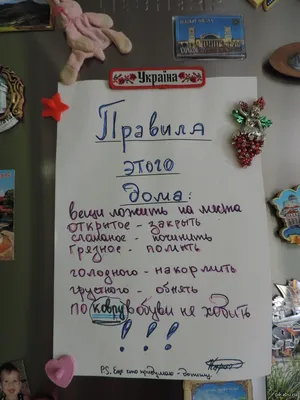 Україна
Правила
этого
дома:
вещи ложить на места
открытое - закрыть
сломаное - починить
грязное - помыть
голодного - накормить
грустного - обнять
по ковру в обуви не ходить
!!!
P.S. Еще что придумаю - допишу.